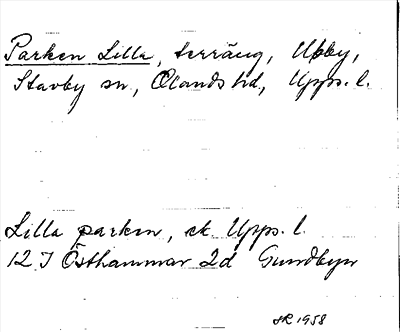 Parken Lilla, terräng, Upby,
Stavby sn, Olands hd, Upps. l.
Lilla parken, ek Upps. l.
12 I Östhammar 2d Gundbyn
SR 1958